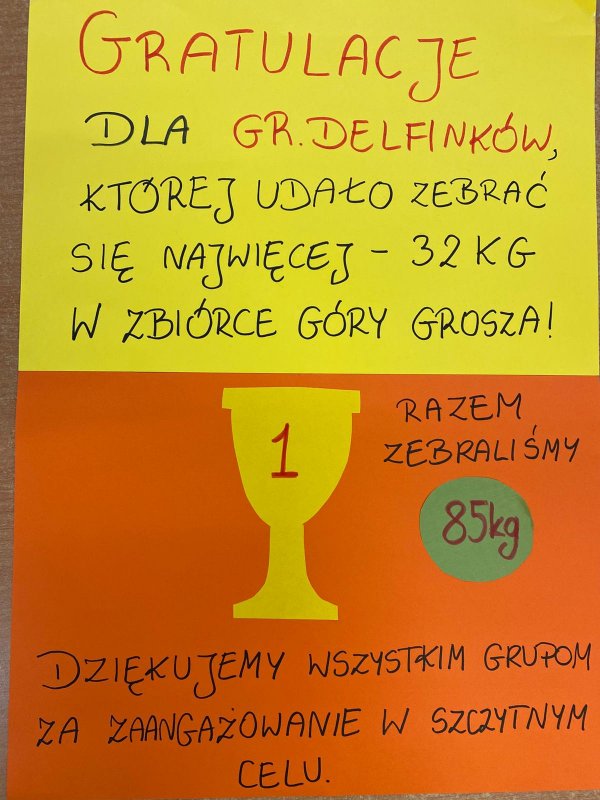 GRATULACJE
DLA GR. DELFINKÓW,
KTÓREJ UDAŁO ZEBRAĆ
SIĘ NAJWIĘCEJ - 32 KG
W ZBIÓRCE GÓRY GROSZA!
1
RAZEM
ZEBRALIŚMY
85kg
DZIĘKUJEMY WSZYSTKIM GRUPOM
ZA ZAANGAŻOWANIE W SZCZYTNYM
CELU.